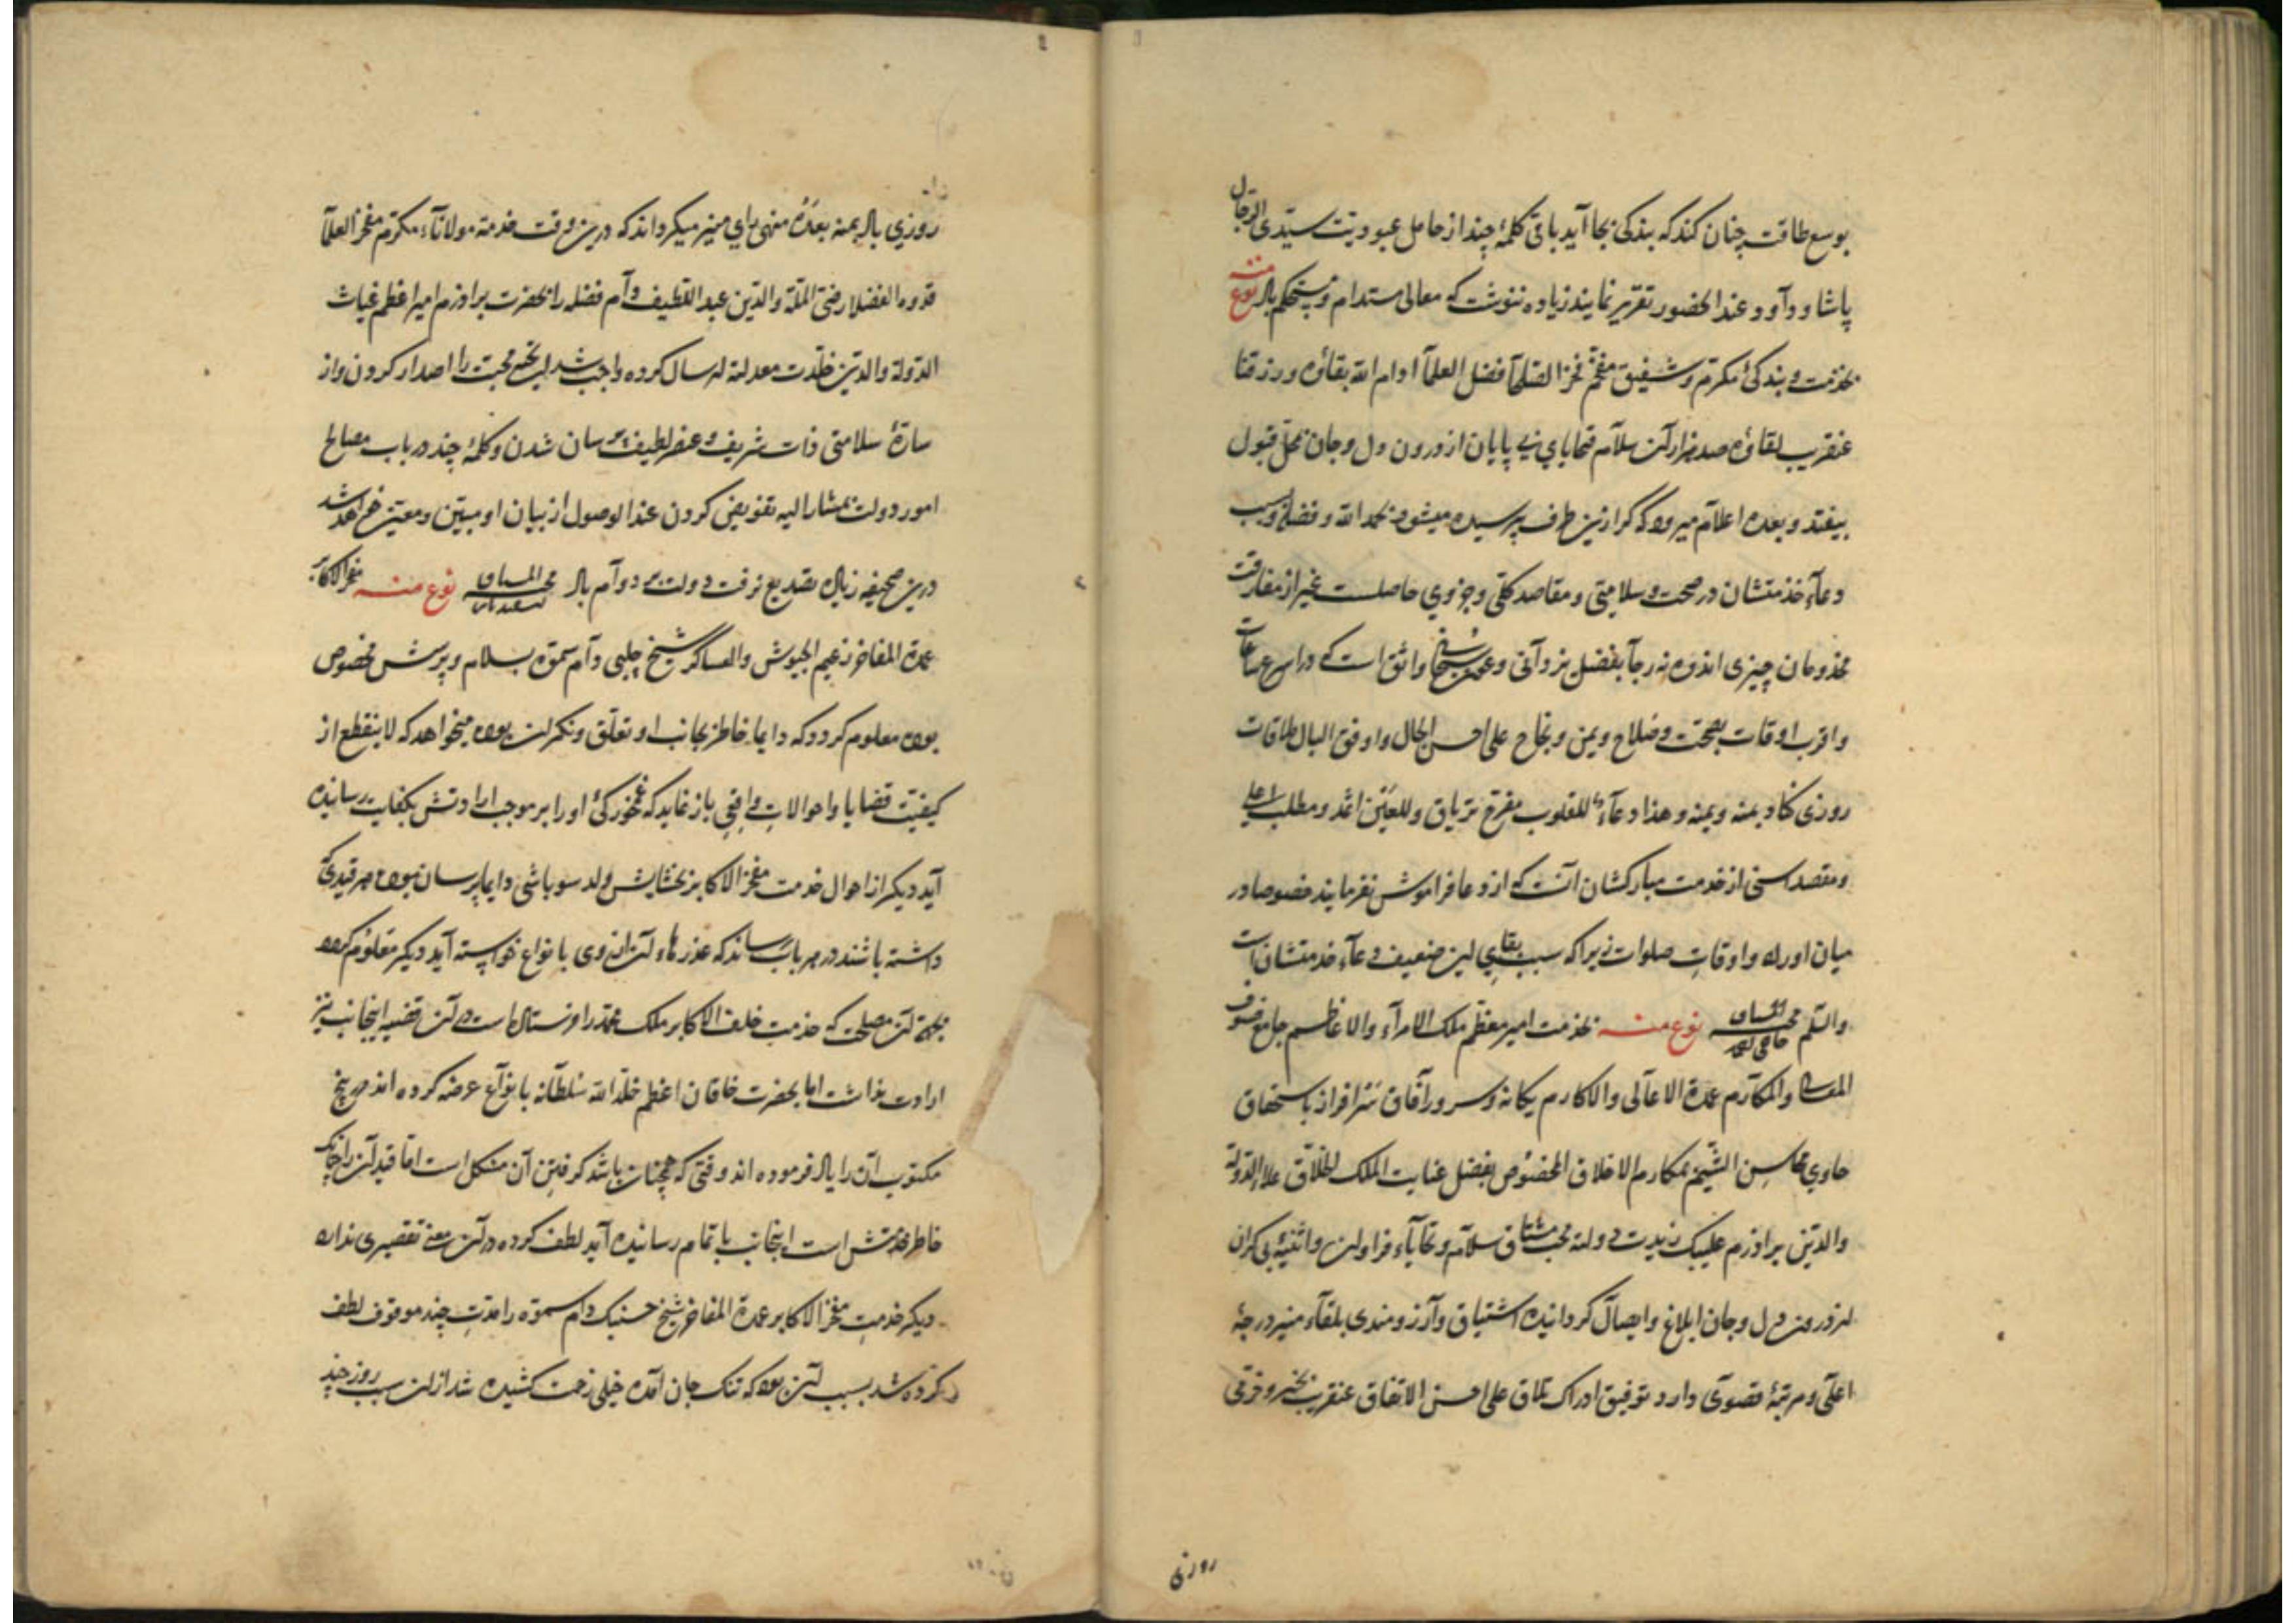 بوسع طاقت چنان کند که بندکی بجا آید باقی کلمهٔ چند از حامل عبودیت سیدی الرجال
پاشا و دآود عند الحضور تقریر نمایند زیاده ننوشت که معالی مستدام و مستحکم باد نوع منه
بخدمت و بندکیٔ مکرم و شفیق مفخم فخر الصلحآ افضل العلمآ ادام الله بقاؤه و رزقنا
عنقریب لقاؤه صد هزاران سلآم و تحایای بی پایان از درون دل و جان بمحل قبول
بیفتد و بعده اعلآم میرود که کر ازین طرف پرسیده میشود بحمد الله و فضله و بسبب
دعآء خدمتشان در صحت و سلامتی و مقاصد کلی و جزوی حاصلست غیر از مفارقت
مخدومان چیزی اندوه نه رجآ بفضل یزدآنی و سبحانی واثق است که در اسرع ساعات
و اقرب اوقات بصحت و صلاح و یمن و نجاح علی احسن الحال و اوفق البال ملاقات
روزی کناد بمنه و یمنه و هذا دعآء للقلوب مفرح تریاق و للعین اثمد و مطلب اعلی
و مقصد اسنی از خدمت مبارکشان آنست که از دعا فراموش نفرمایند خصوصا در
میان اوراد و اوقات صلوات زیرا که سبب بقای این ضعیف دعآء خدمتشان است
والسلم نوع منه بخدمت امیر معظم ملک الامرآء و الاعاظم جامع صنوف
المعالی و المکآرم عمدة الاعآلی و الاکارم یکانه و سرور آفاق سرافراز باستحقاق
حاوی محاسن الشیم بمکارم الاخلاق المخصوص بفضل عنایت الملک الخلاق علاء الدولة
والدین برادرم علیبک زیدت دولته محب مشتاق سلآم و تحایآء فراوان و اثنیهٔ بی کران
از درون دل و جان ابلاغ و ایصال کردانیده اشتیاق و آرزومندی بلقآء منیر درجهٔ
اعلی و مرتبهٔ قصوی دارد توفیق ادراک تلاق علی احسن الاتفاق عنقریب بخیر و خرمی
روزی
روزی باد بمنه بعده منهی رای منیر میکرداند که درین وقت خدمة مولانآء مکرم مفخر العلمآ
قدوه الفضلا رضی الملة والدین عبد اللطیف دآم فضله را بحضرت برادرم امیر اعظم غیاث
الدولة والدین خلدت معدلته ارسال کرده واجب شد این محبت را اصدار کردن و از
سارهٔ سلامتی ذات شریف و عنصر لطیف پرسان شدن و کلمهٔ چند در باب مصالح
امور دولت بمشار الیه تفویض کردن عند الوصول از بیان او مبین و معین خواهد شد
درین صحیفه زیاده تصدیع نرفت دولت بر دوآم باد نوع منه مفخر الاکابر
عمدة المفاخر زعیم الجیوش و العساکر شیخ چلبی دآم سموه بسلام و پرسش مخصوص
بوده معلوم کردد که دایما خاطر بجانب او تعلق و نکران بوده میخواهد که لا ینقطع از
کیفیت قضایا و احوالات واقعی باز نماید که غمخورکیٔ او را بر موجب ارادتش بکفایت رسانیده
آید دیکر از احوال خدمت مفخر الاکابر بخشایش ولد سوباشی دایما پرسان بوده هر قیدی که
داشته باشند در هر باب رساند که عذرهاء آن از وی بانواع خواسته آید دیکر معلوم کرده
بجهة آن مصلحت که خدمت خلف الاکابر ملک محمد را فرستاده است در آن قضیه اینجانب نیز
ارادت بذاشت اما بحضرت خاقان اعظم خلد الله سلطانه بانوآع عرضه کرده اند در پنج
مکتوب آن را یاد فرموده اند وقتی که همچنان باشد کرفتن آن مشکل است اما قید آن را چنانک
خاطر خدمتش است اینجانب باتمام رسانیده آید لطف کرده در آن معنی تقصیری نداره
دیکر خدمت مفخر الاکابر عمدة المفاخر شیخ حسنبک دام سموه را مدت چند موقوف لطف
کرده شد بسبب آن بود که تنک جان آمده خیلی زحمت کشیده شد از آن سبب روز چند